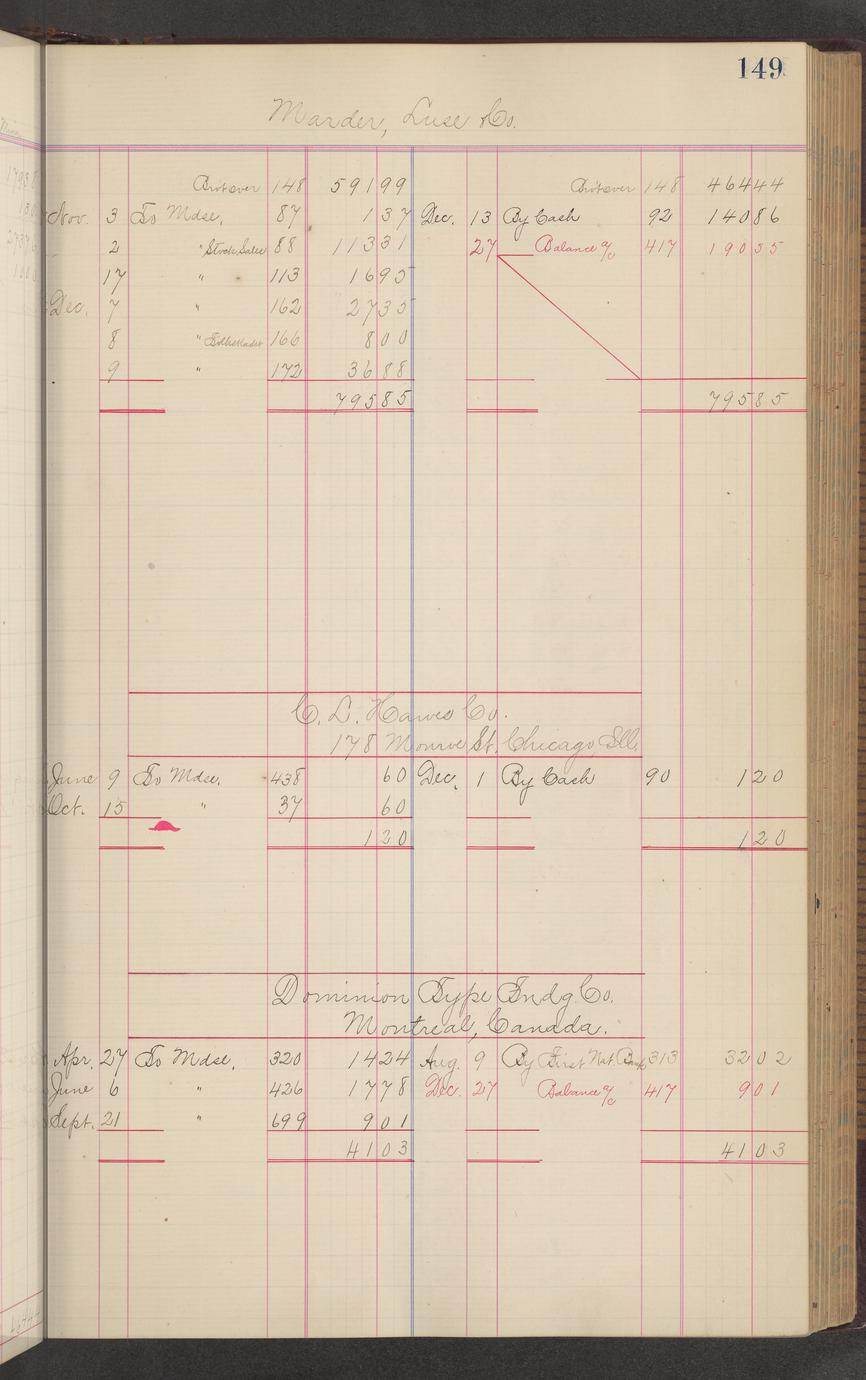 149
Marder, Luse & Co.
Brot over 148 591 99 Brot over 148 464 44
Nov. 3 To Mdse. 87 1 37 Dec. 13 By Cash 92 140 86
2 " Stock Sales 88 113 31 27 Balance a/c 417 190 55
17 " 113 16 95
Dec. 7 " 162 27 35
8 " 166 8 00
9 " 172 36 88
795 85 795 85
C. L. Hawes Co.
178 Monroe St. Chicago Ill.
June 9 To Mdse. 438 60 Dec. 1 By Cash 90 1 20
Oct. 15 " 37 60
1 20 1 20
Dominion Type Fndg Co.
Montreal, Canada.
Apr. 27 To Mdse. 320 14 24 Aug. 9 By First Nat. Bank 313 32 02
June 6 " 426 17 78 Dec. 27 Balance a/c 417 9 01
Sept. 21 " 699 9 01
41 03 41 03